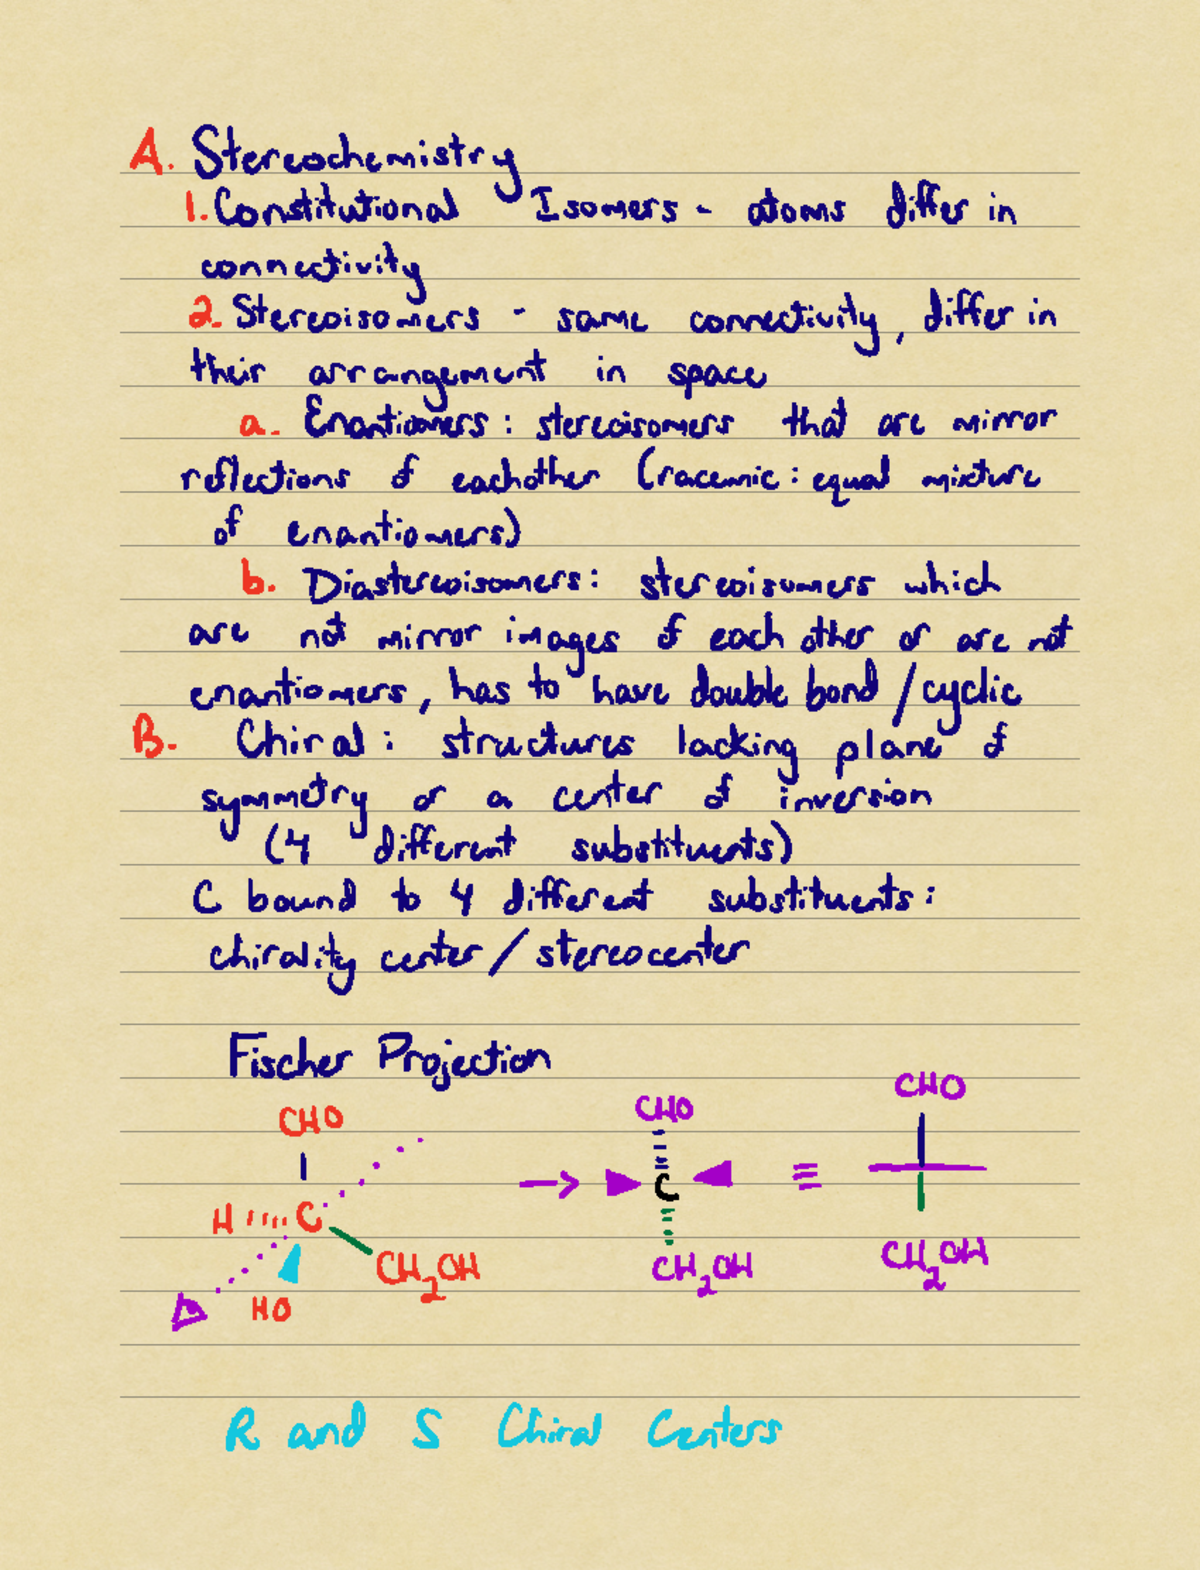 A. Stereochemistry
1. Constitutional Isomers - atoms differ in
connectivity
2. Stereoisomers - same connectivity, differ in
their arrangement in space
a. Enantiomers: stereoisomers that are mirror
reflections of eachother (racemic: equal mixture
of enantiomers)
b. Diastereoisomers: stereoisomers which
are not mirror images of each other or are not
enantiomers, has to have double bond / cyclic
B. Chiral: structures lacking plane of
symmetry or a center of inversion
(4 different substituents)
C bound to 4 different substituents:
chirality center / stereocenter
Fischer Projection
CHO CHO CHO
H C → C ≡
CH₂OH CH₂OH CH₂OH
HO
R and S Chiral Centers